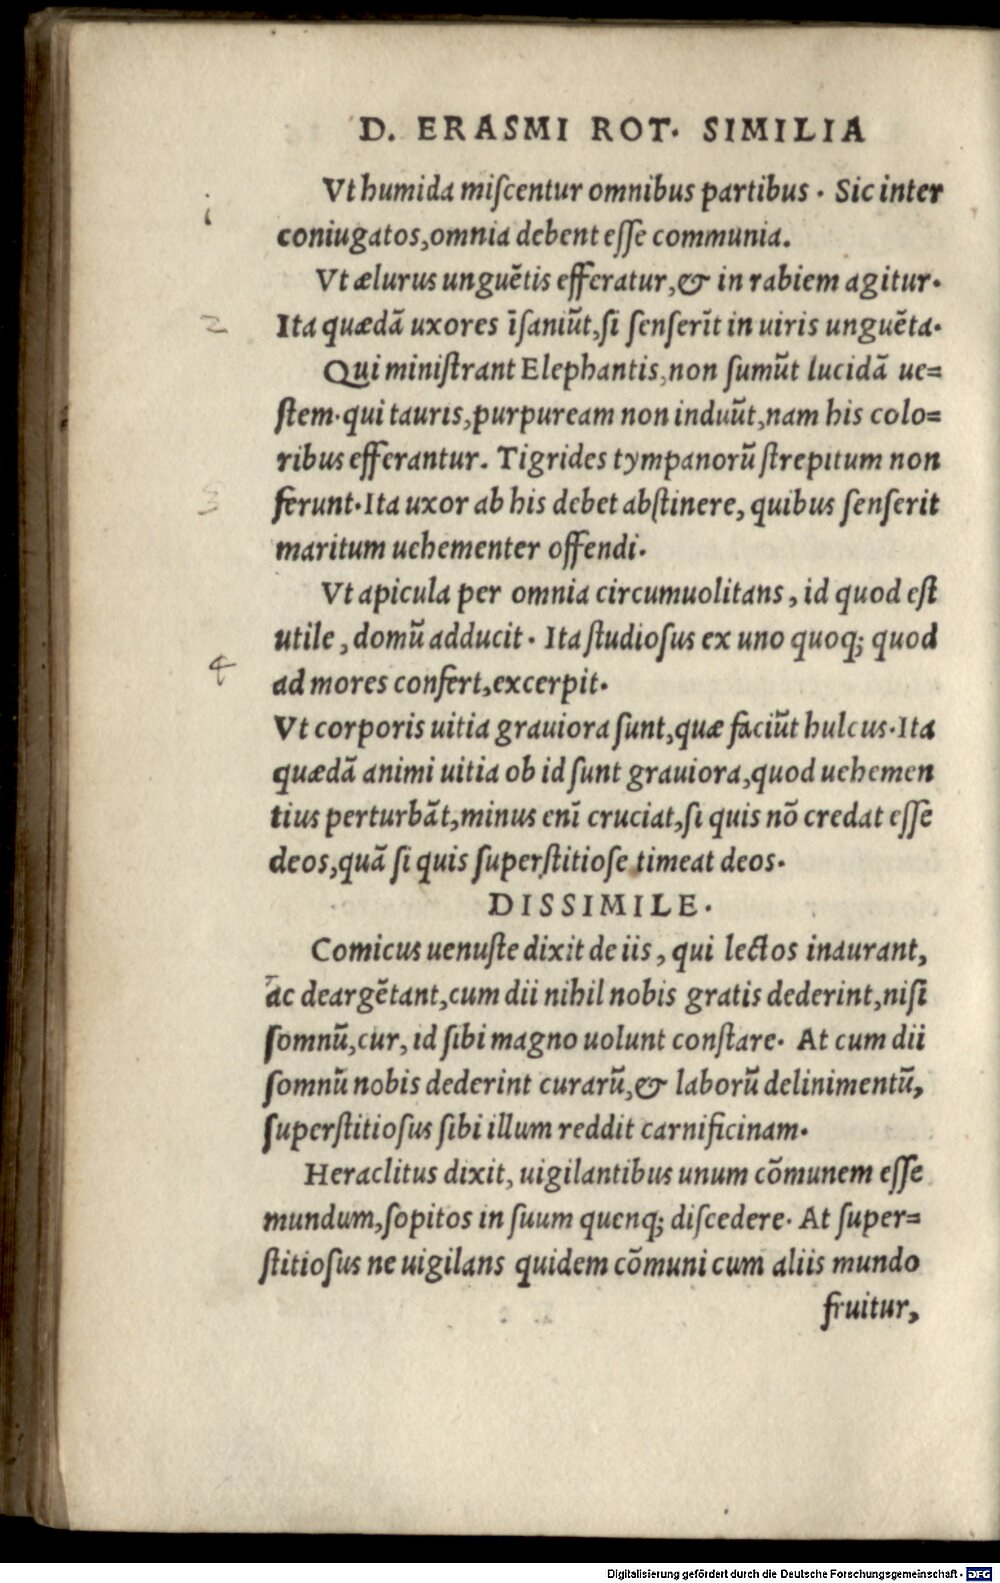 D. ERASMI ROT. SIMILIA
i
Vt humida miſcentur omnibus partibus . Sic inter
coniugatos,omnia debent eſſe communia.
Vt ælurus unguẽtis efferatur,& in rabiem agitur.
2
Ita quædã uxores ĩſaniũt,ſi ſenſerĩt in uiris unguẽta.
Qui miniſtrant Elephantis,non ſumũt lucidã ue=
ſtem.qui tauris,purpuream non induũt,nam his colo=
ribus efferantur. Tigrides tympanorũ ſtrepitum non
3
ferunt.Ita uxor ab his debet abſtinere, quibus ſenſerit
maritum uehementer offendi.
Vt apicula per omnia circumuolitans, id quod eſt
utile, domũ adducit. Ita ſtudioſus ex uno quoq; quod
4
ad mores confert,excerpit.
Vt corporis uitia grauiora ſunt,quæ faciũt hulcus.Ita
quædã animi uitia ob id ſunt grauiora,quod uehemen
tius perturbãt,minus enĩ cruciat,ſi quis nõ credat eſſe
deos,quã ſi quis ſuperſtitioſe timeat deos.
DISSIMILE.
Comicus uenuſte dixit de iis, qui lectos inaurant,
ac deargẽtant,cum dii nihil nobis gratis dederint,niſi
ſomnũ,cur, id ſibi magno uolunt conſtare. At cum dii
ſomnũ nobis dederint curarũ,& laborũ delinimentũ,
ſuperſtitioſus ſibi illum reddit carnificinam.
Heraclitus dixit, uigilantibus unum cõmunem eſſe
mundum,ſopitos in ſuum quenq; diſcedere. At ſuper=
ſtitioſus ne uigilans quidem cõmuni cum aliis mundo
fruitur,
Digitalisierung gefördert durch die Deutsche Forschungsgemeinschaft - DFG